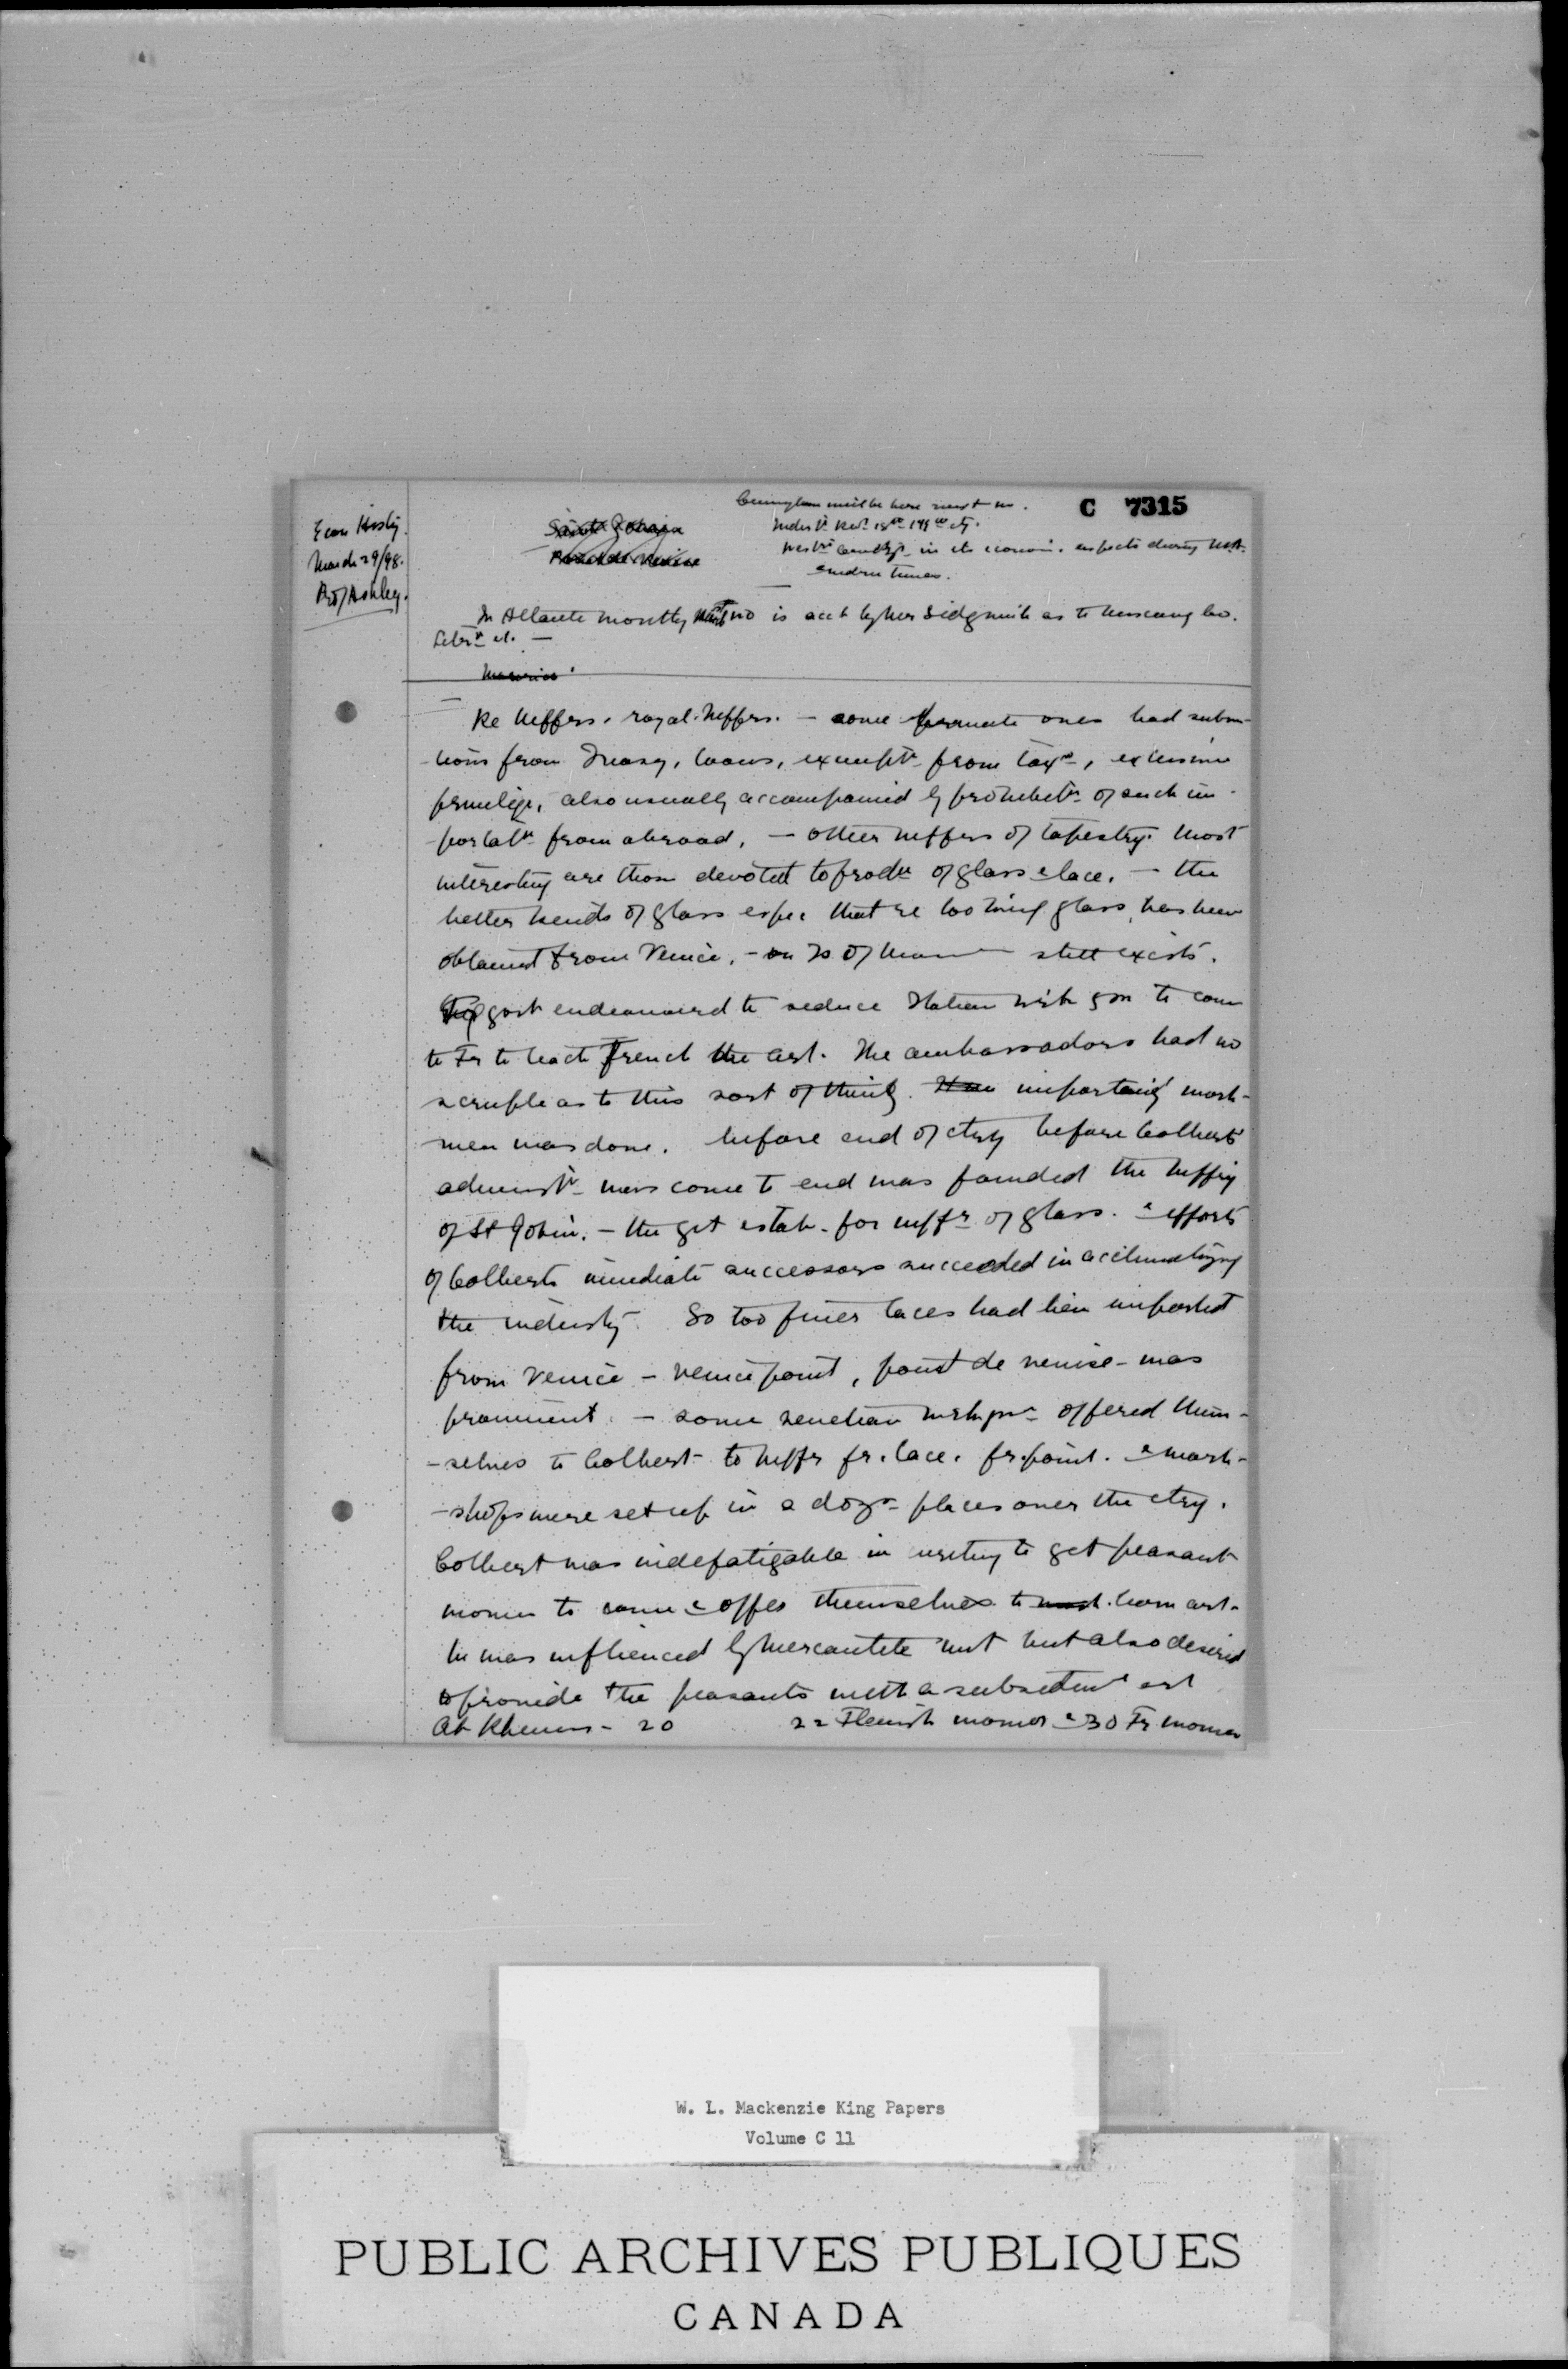 C 7315
Econ Histy.
March 29/98.
Prof Ashley.
Cunningham will be here next
Indust Revn 18th 19th cty.
Westn in its economic aspects during
modern times.
In Atlantic monthly no is acct by Mr Sidgwick as to
Re Mffrs. royal Mffrs. — some private ones had
from Treasy, loans, exemptn from taxn, extensive
privilege, also usually accompanied by prohibitn of such im-
portatn from abroad, — other mffrs of tapestry. Most
interesting are those devoted to prodn of glass & lace. — the
better kinds of glass espec that re looking glass, has been
obtained from Venice, - on Is of still exists.
govt endeavoured to seduce Italian to come
to Fr to teach French the art. The ambassadors had no
scruple as to this sort of thing. importing work-
men was done. before end of cty before Colbert's
administn was come to end was founded the mffy
of St Gobin. — the gt estab. for mffr of glass. & efforts
of Colberts immediate successors succeeded in acclimatizing
the industy. So too finer laces had been imported
from Venice — Venice point, point de venise — was
prominent. — some venetian offered them-
-selves to Colbert to mffr fr. lace. fr. point. & work-
-shops were set up in a dozn places over the ctry.
Colbert was indefatigable in writing to get peasant
women to come & offer themselves to learn art.
he was influenced by mercantile but also desired
to provide the peasants with a art
At Rheims - 20 22 Flemish women & 30 Fr women
W. L. Mackenzie King Papers
Volume C 11
PUBLIC ARCHIVES PUBLIQUES
CANADA